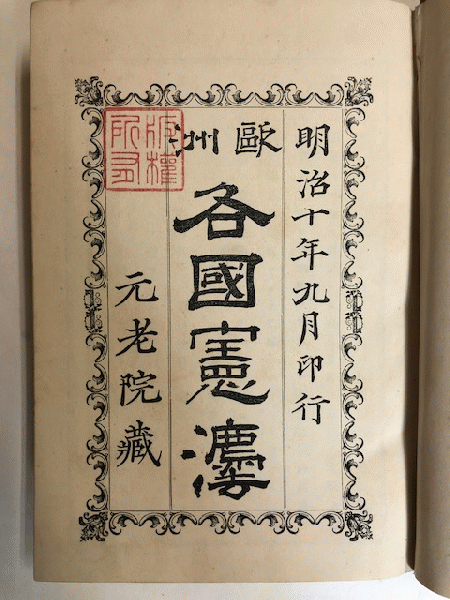 明治十年九月印行
歐洲
各國憲灋
元老院藏
版權
所有